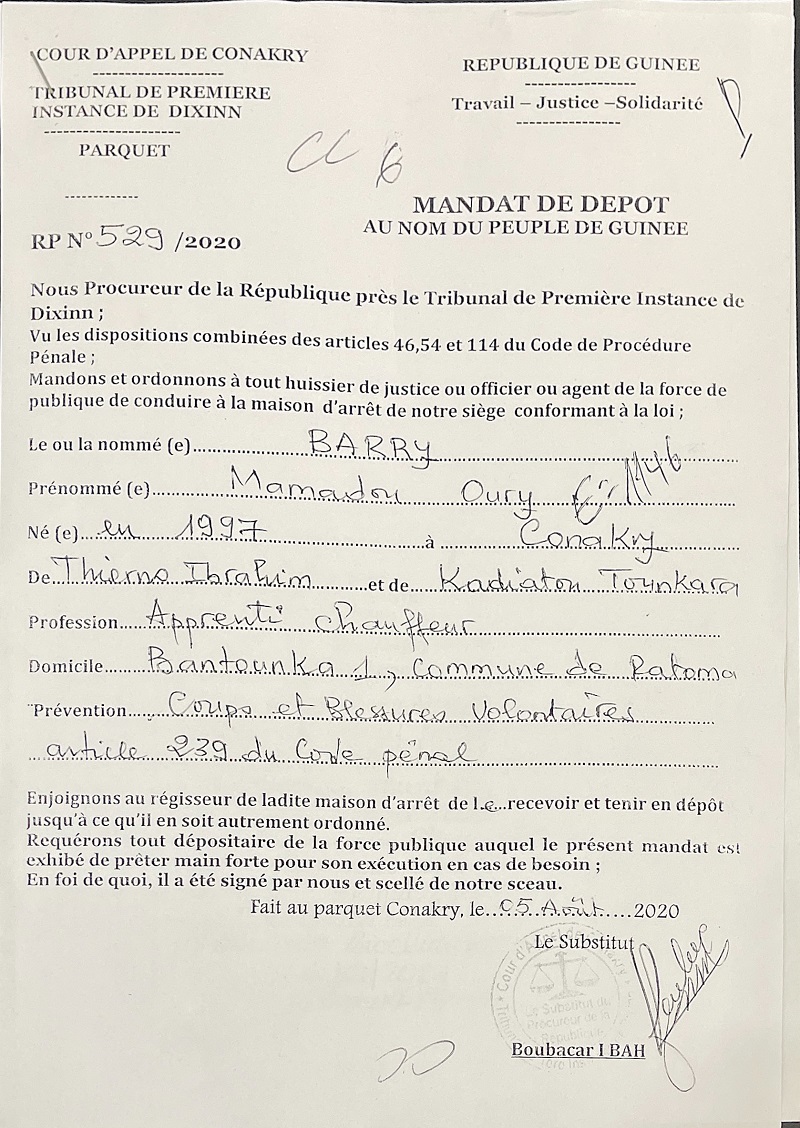 COUR D'APPEL DE CONAKRY
--------------------
TRIBUNAL DE PREMIERE
INSTANCE DE DIXINN
---------------------
PARQUET
------------
REPUBLIQUE DE GUINEE
-----------------
Travail – Justice –Solidarité
----------------
CC 6
MANDAT DE DEPOT
AU NOM DU PEUPLE DE GUINEE
RP N° 529 /2020
Nous Procureur de la République près le Tribunal de Première Instance de
Dixinn ;
Vu les dispositions combinées des articles 46,54 et 114 du Code de Procédure
Pénale ;
Mandons et ordonnons à tout huissier de justice ou officier ou agent de la force de
publique de conduire à la maison d'arrêt de notre siège conformant à la loi ;
Le ou la nommé (e) BARRY
Prénommé (e) Mamadou Oury 1146
Né (e) en 1997 à Conakry
De Thierno Ibrahim et de Kadiatou Tounkara
Profession Apprenti chauffeur
Domicile Bantounka 1, Commune de Ratoma
Prévention Coups et Blessures Volontaires
article 239 du Code pénal
Enjoignons au régisseur de ladite maison d'arrêt de l.e..recevoir et tenir en dépôt
jusqu'à ce qu'il en soit autrement ordonné.
Requérons tout dépositaire de la force publique auquel le présent mandat est
exhibé de prêter main forte pour son exécution en cas de besoin ;
En foi de quoi, il a été signé par nous et scellé de notre sceau.
Fait au parquet Conakry, le 05 Août 2020
Le Substitut
Cour d'Appel de
Le Substitut du
Procureur de la
République
Boubacar I BAH